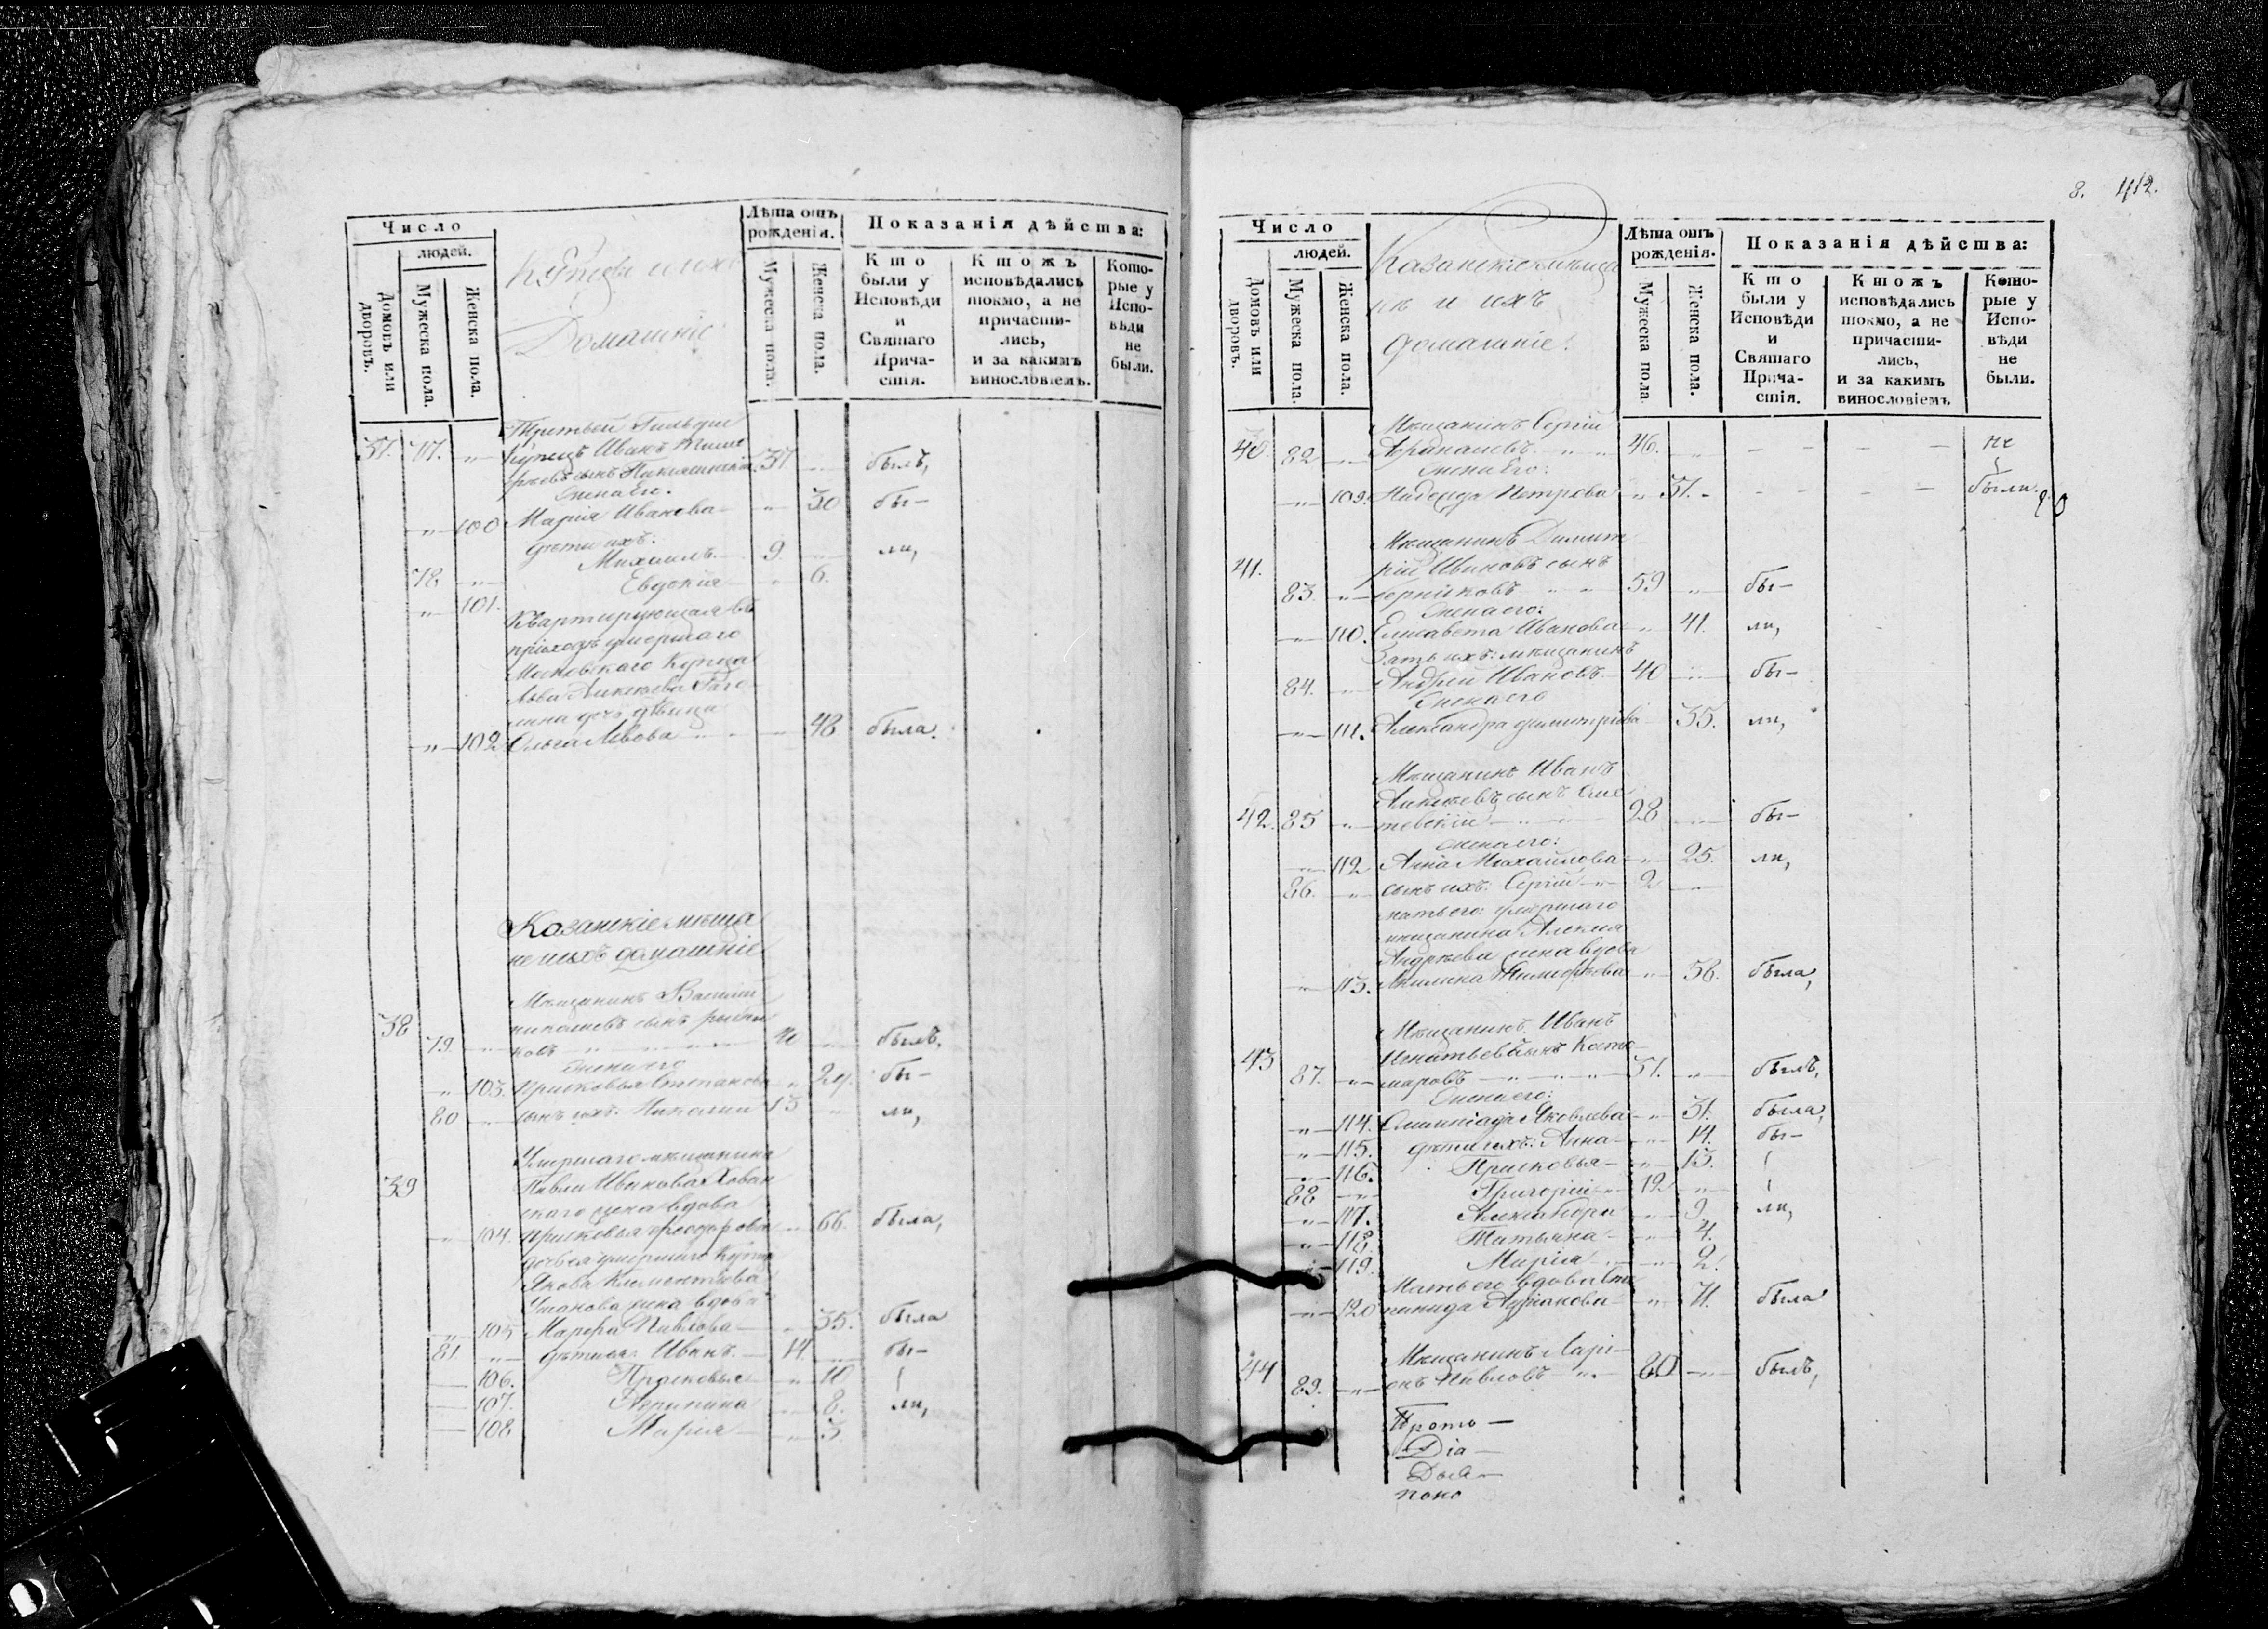 Число
людей.
Домовъ или дворовъ.
Мужеска пола.
Женска пола.
Купцы и ихъ
Домашніе
Лѣта отъ рожденія.
Мужеска пола.
Женска пола.
Показанія дѣйства:
Кто были у Исповѣди и Святаго Причастія.
Кто жъ исповѣдались токмо, а не причастились, и за какимъ винословіемъ.
Которые у Исповѣди не были.
Третьей Гильдіи
37. 77. " Купецъ Иванъ 37 " былъ,
сынъ
Жена Его.
" 100 Марія Иванова " 30 бы-
дѣти ихъ:
78. " Михаилъ 9. " ли,
" 101. Евдокія " 6.
Квартирующая въ
приходѣ умершаго
Московскаго Купца
Льва Алексѣева
дочь дѣвица
" 102 Ольга Львова " 48 была.
Казанскіе мѣща
не и ихъ домашніе
Мѣщанинъ Василій
38 Николаевъ сынъ
79. " ковъ " 40 " былъ,
Жена его
" 103. Прасковья Степанова " 29. бы-
80 " сынъ ихъ: Николай 13 " ли,
Умершаго мѣщанина
39 Павла Иванова Хован
скаго жена вдова
" 104. Прасковья Феодорова " 66. была,
дочь ея умершаго Купца
Якова Климентьева
жена вдова
" 105 Марфа Павлова " 35. была
81. " дѣти ея: Иванъ. 14. " бы-
106. Прасковья " 10
107. Агрипина " 8. ли,
108 Марія " 3
8. 412.
Число
людей.
Домовъ или дворовъ.
Мужеска пола.
Женска пола.
Казанскіе мѣща
не и ихъ
домашніе.
Лѣта отъ рожденія.
Мужеска пола.
Женска пола.
Показанія дѣйства:
Кто были у Исповѣди и Святаго Причастія.
Кто жъ исповѣдались токмо, а не причастились, и за какимъ винословіемъ
Которые у Исповѣди не были.
Мѣщанинъ Сергій
40. 82 " Афанасьевъ " " 46. " - - - - не
Жена Его:
" 109. Надежда Петрова " 37. - - - - - были.
Мѣщанинъ Димит
41. рій Ивановъ сынъ
83. " " " 59 " бы-
Жена его:
" 110. Елисавета Иванова " 41. ли,
Зять ихъ: мѣщанинъ
84. " Андрей Ивановъ 40 " бы-
Жена его
" 111. Александра Димитріева 35. ли,
Мѣщанинъ Иванъ
Алексѣевъ сынъ
42. 85 " невскій " 28 " бы-
Жена его:
" 112 Анна Михайлова " 25. ли,
86. " сынъ ихъ: Сергій " 2 "
мать его: умершаго
мѣщанина Алексѣя
Андреева жена вдова
" 113. Акилина Тимофѣева " 56. была,
Мѣщанинъ. Иванъ
43 Игнатьевъ сынъ
87. " маровъ " " " 37. " былъ,
Жена его:
" 114. Олимпіада Яковлева " 31. была,
" 115. дѣти ихъ: Анна " 14. бы-
" 116. Прасковья " 13.
88 " Григорій " 12 "
" 117. Александра " 9. ли,
" 118. Татьяна " 4.
" 119. Марія " 2.
Мать его вдова Сте
" 120 панида " 71. была
44 Мѣщанинъ Ларі-
89. " онъ Павловъ " 80 " былъ,
Прото-
Діа-
поно